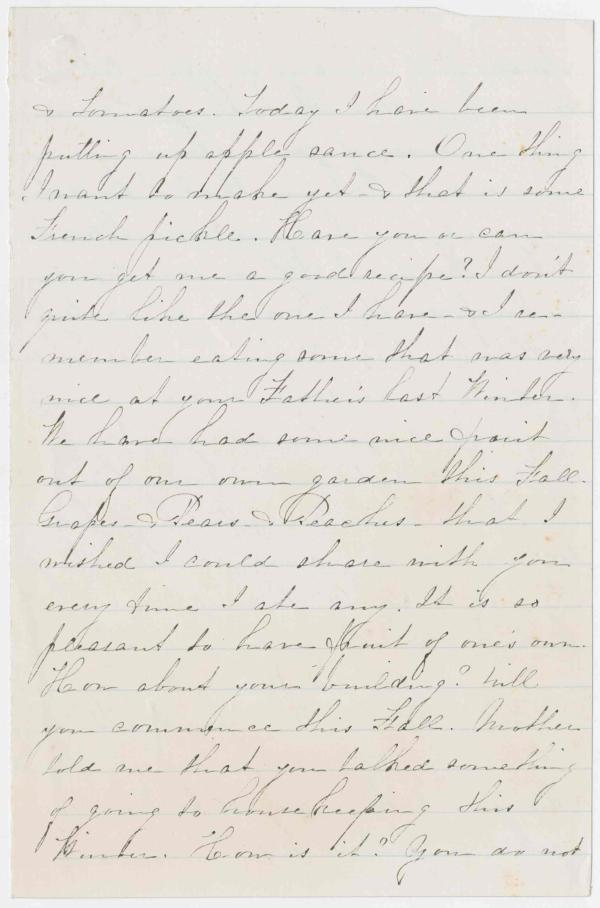 & Tomatoes. Today I have been
putting up apple sauce. One thing
I want to make yet - & that is some
French pickle. Have you or can
you get me a good recipe? I don't
quite like the one I have - & I re-
member eating some that was very
nice at your Father's last Winter.
We have had some nice fruit
out of our own garden this Fall.
Grapes - & Pears - & Peaches - that I
wished I could share with you
every time I ate any. It is so
pleasant to have fruit of one's own.
How about your building? Will
you commence this Fall. Mother
told me that you talked something
of going to housekeeping this
Winter. How is it? You do not